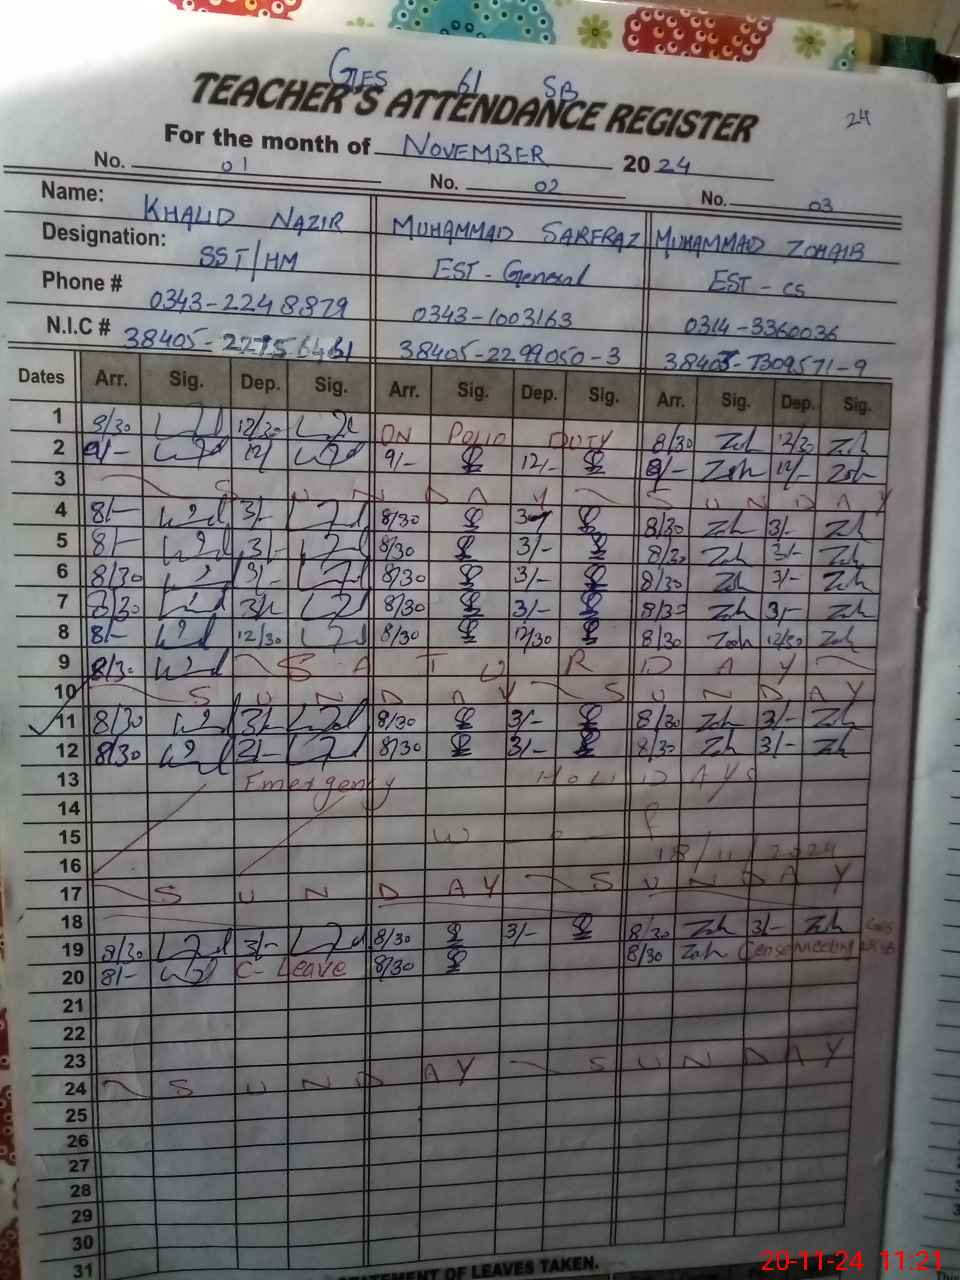 GES 61 SB
TEACHER'S ATTENDANCE REGISTER
24
For the month of NOVEMBER 2024
No. 01 No. 02 No. 03
Name: KHALID NAZIR MUHAMMAD SARFRAZ MUHAMMAD ZOHAIB
Designation: SST/HM EST - General EST - CS
Phone # 0343-2248879 0343-1003163 0314-3360036
N.I.C # 38405- 38405-2299050-3 38405-7309571-9
Dates Arr. Sig. Dep. Sig. Arr. Sig. Dep. Sig. Arr. Sig. Dep. Sig.
1 8/30 12/30 ON POLIO DUTY 8/30 Zoh 12/30 Zoh
2 9/- 12/ 9/- 12/- 9/- Zoh 12/- Zoh
3 SUNDAY SUNDAY
4 8/- 3/- 8/30 3/- 8/30 Zoh 3/- Zoh
5 8/- 3/- 8/30 3/- 8/30 Zoh 3/- Zoh
6 8/30 3/- 8/30 3/- 8/30 Zoh 3/- Zoh
7 8/30 3/- 8/30 3/- 8/30 Zoh 3/- Zoh
8 8/- 12/30 8/30 12/30 8/30 Zoh 12/30 Zoh
9 8/30 SATURDAY
10 SUNDAY SUNDAY
11 8/30 3/- 8/30 3/- 8/30 Zoh 3/- Zoh
12 8/30 8/30 3/- 8/30 Zoh 3/- Zoh
13 Emergency HOLIDAYS
14
15
16 18/11/2024
17 SUNDAY SUNDAY
18 8/30 3/- 8/30 Zoh 3/- Zoh
19 8/30 3/- 8/30 8/30 Zoh Meeting
20 8/- C-Leave
21
22
23
24 SUNDAY SUNDAY
25
26
27
28
29
30
31
STATEMENT OF LEAVES TAKEN.
20-11-24 11:21